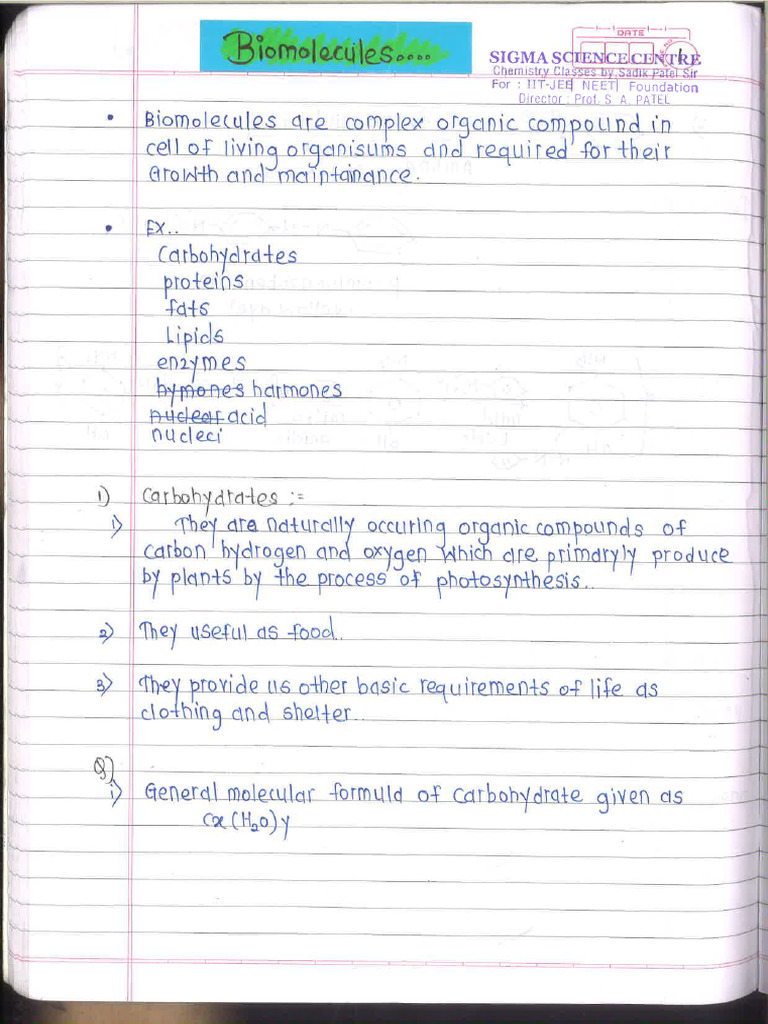 Biomolecules....
DATE
SIGMA SCIENCE CENTRE
Chemistry Classes by Sadik Patel Sir
For : IIT-JEE NEET Foundation
Director : Prof. S. A. PATEL
• Biomolecules are complex organic compound in
cell of living organisums and required for their
Growth and maintainance.
• Ex..
Carbohydrates
proteins
fats
Lipids
enzymes
hymones harmones
nuclear acid
nucleci
1) Carbohydrates :=
1) They are naturally occuring organic compounds of
carbon hydrogen and oxygen which are primaryly produce
by plants by the process of photosynthesis..
2) They useful as food..
3) They provide us other basic requirements of life as
clothing and shelter..
Q)
1) General molecular formula of carbohydrate given as
Cx(H₂O)y